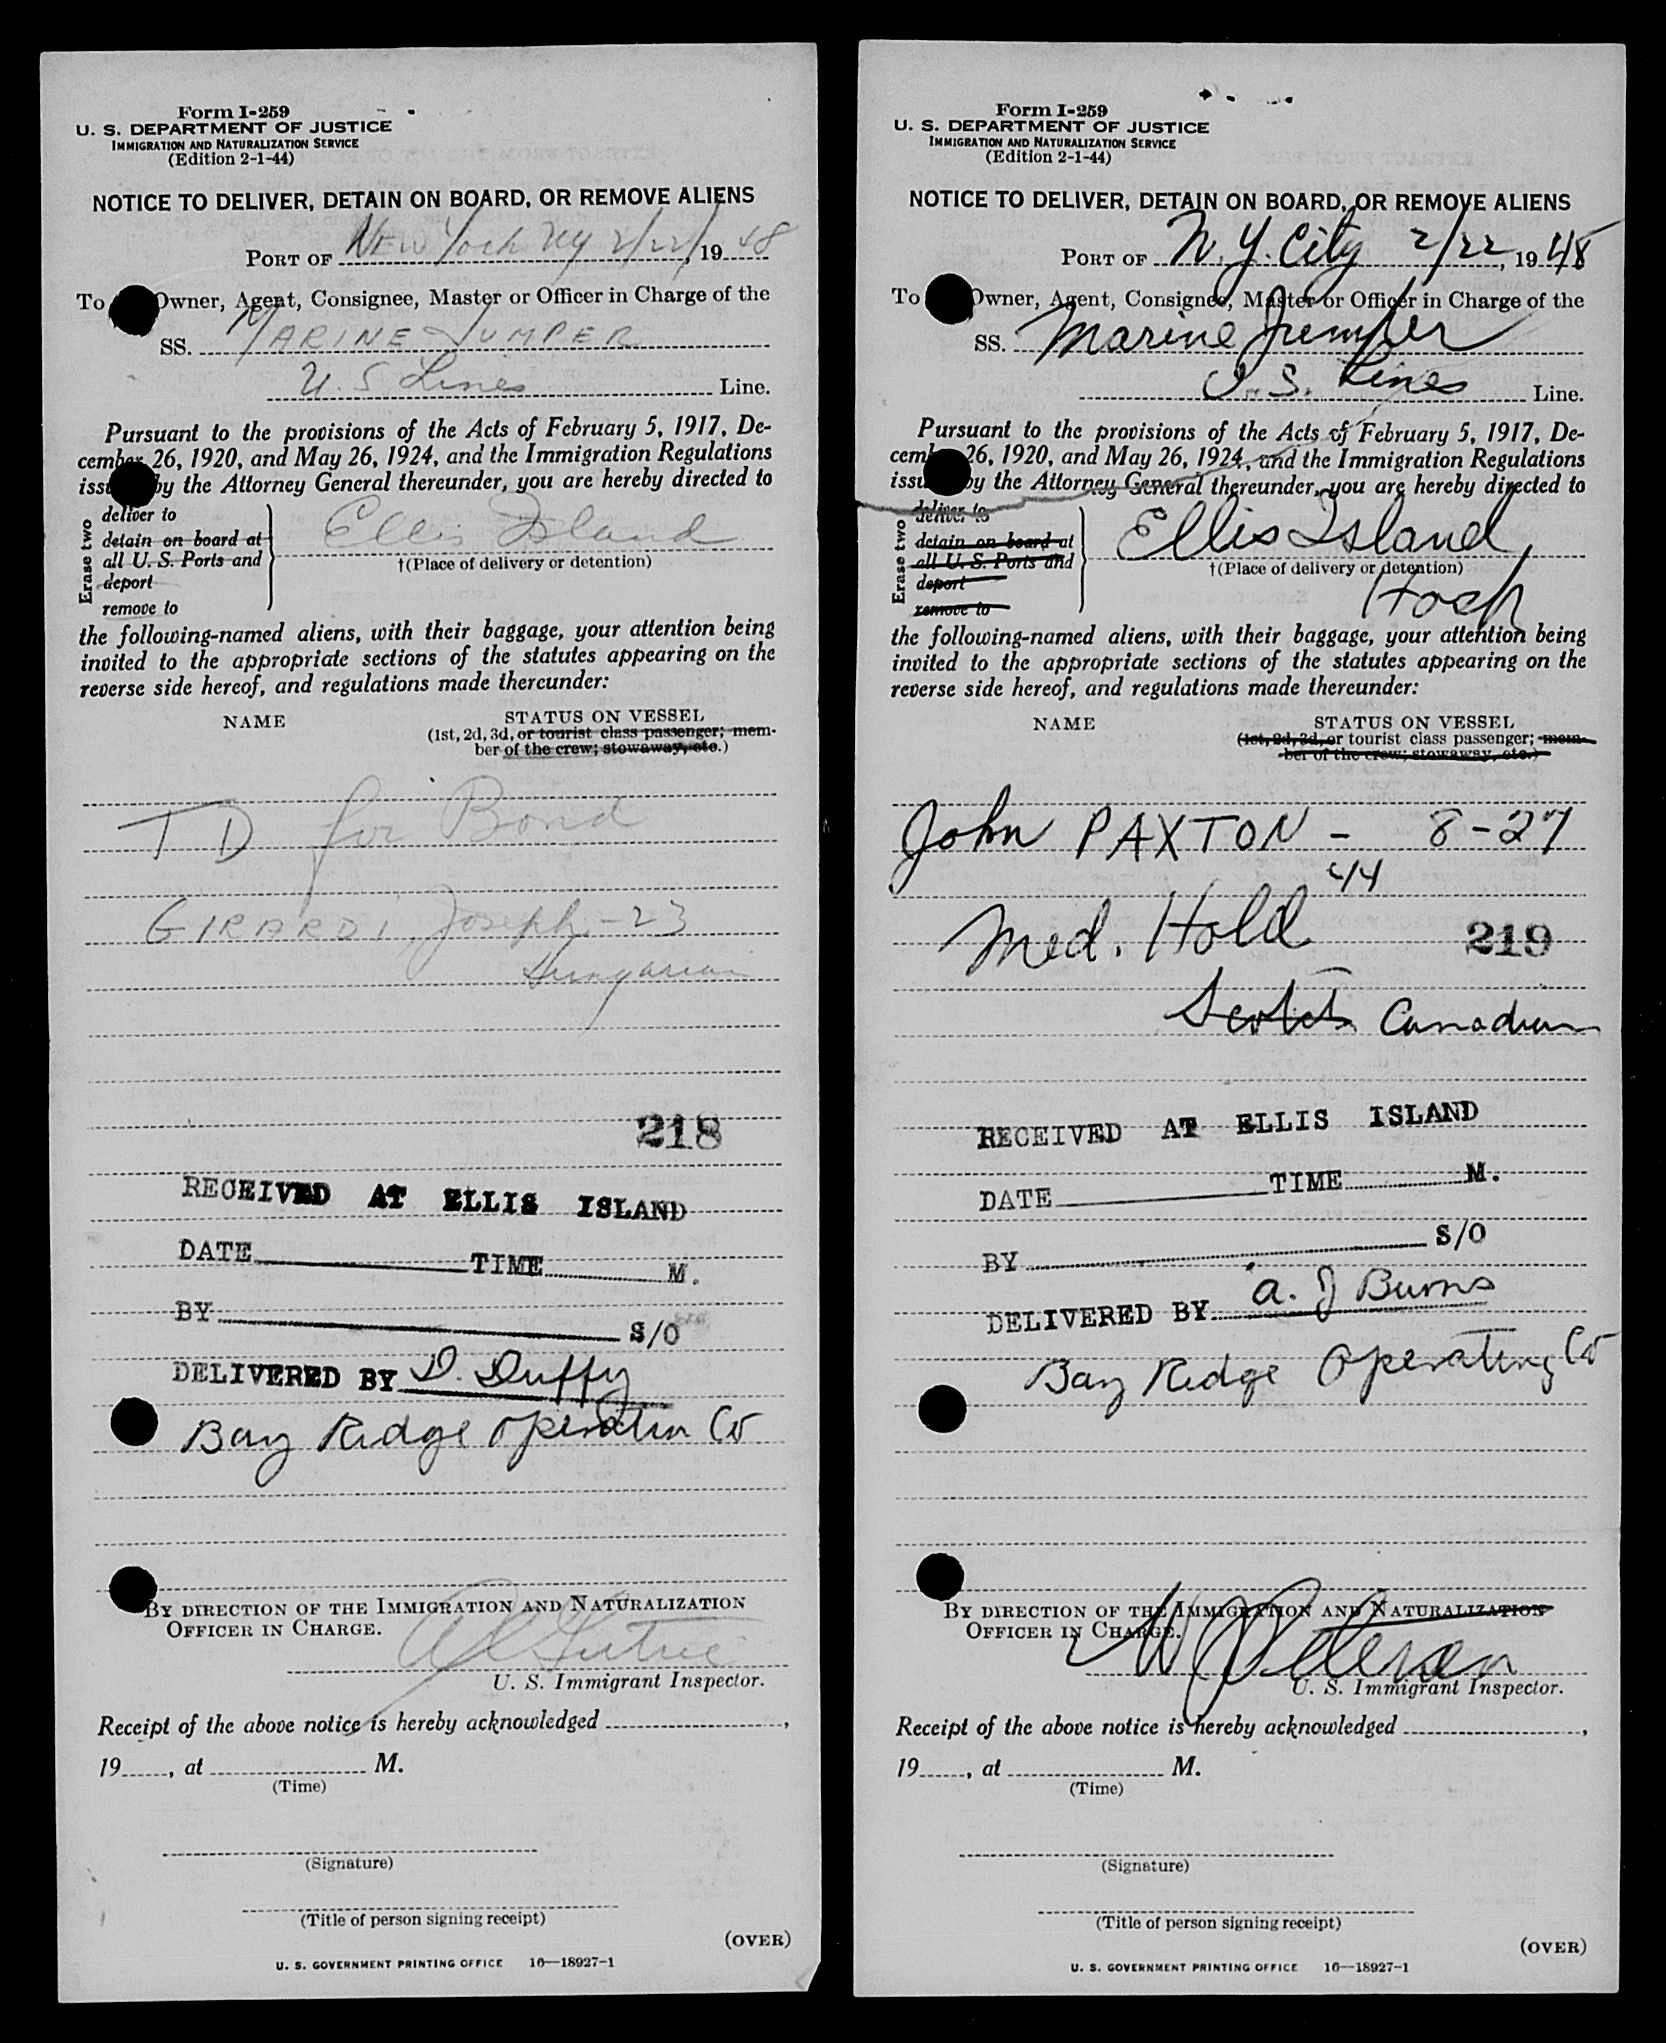 Form I-259
U. S. DEPARTMENT OF JUSTICE
IMMIGRATION AND NATURALIZATION SERVICE
(Edition 2-1-44)
NOTICE TO DELIVER, DETAIN ON BOARD, OR REMOVE ALIENS
PORT OF New York NY 2/22/, 19 48
To Owner, Agent, Consignee, Master or Officer in Charge of the
SS. MARINE JUMPER
U.S Lines Line.
Pursuant to the provisions of the Acts of February 5, 1917, De-
cember 26, 1920, and May 26, 1924, and the Immigration Regulations
issued by the Attorney General thereunder, you are hereby directed to
Erase two
deliver to
detain on board at
all U. S. Ports and
deport
remove to
Ellis Island
†(Place of delivery or detention)
the following-named aliens, with their baggage, your attention being
invited to the appropriate sections of the statutes appearing on the
reverse side hereof, and regulations made thereunder:
NAME STATUS ON VESSEL
(1st, 2d, 3d, or tourist class passenger; mem-
ber of the crew; stowaway, etc.)
T D for Bond
GIRARDI, Joseph - 23
Hungarian
218
RECEIVED AT ELLIS ISLAND
DATE TIME M.
BY S/O
DELIVERED BY D. Duffy
Bay Ridge Operatin Co
BY DIRECTION OF THE IMMIGRATION AND NATURALIZATION
OFFICER IN CHARGE.
U. S. Immigrant Inspector.
Receipt of the above notice is hereby acknowledged ,
19 , at M.
(Time)
(Signature)
(Title of person signing receipt)
(OVER)
U. S. GOVERNMENT PRINTING OFFICE 16—18927-1
Form I-259
U. S. DEPARTMENT OF JUSTICE
IMMIGRATION AND NATURALIZATION SERVICE
(Edition 2-1-44)
NOTICE TO DELIVER, DETAIN ON BOARD, OR REMOVE ALIENS
PORT OF N.Y. City 2/22, 19 48
To Owner, Agent, Consignee, Master or Officer in Charge of the
SS. Marine Jumper
U.S. Lines Line.
Pursuant to the provisions of the Acts of February 5, 1917, De-
cember 26, 1920, and May 26, 1924, and the Immigration Regulations
issued by the Attorney General thereunder, you are hereby directed to
Erase two
deliver to
detain on board at
all U. S. Ports and
deport
remove to
Ellis Island,
†(Place of delivery or detention)
Hosp
the following-named aliens, with their baggage, your attention being
invited to the appropriate sections of the statutes appearing on the
reverse side hereof, and regulations made thereunder:
NAME STATUS ON VESSEL
(1st, 2d, 3d, or tourist class passenger; mem-
ber of the crew; stowaway, etc.)
John PAXTON - 8-27
44
Med. Hold
219
Scotch Canadian
RECEIVED AT ELLIS ISLAND
DATE TIME M.
BY S/O
DELIVERED BY A. J Burns
Bay Ridge Operating Co
BY DIRECTION OF THE IMMIGRATION AND NATURALIZATION
OFFICER IN CHARGE.
W Peterson
U. S. Immigrant Inspector.
Receipt of the above notice is hereby acknowledged ,
19 , at M.
(Time)
(Signature)
(Title of person signing receipt)
(OVER)
U. S. GOVERNMENT PRINTING OFFICE 16—18927-1